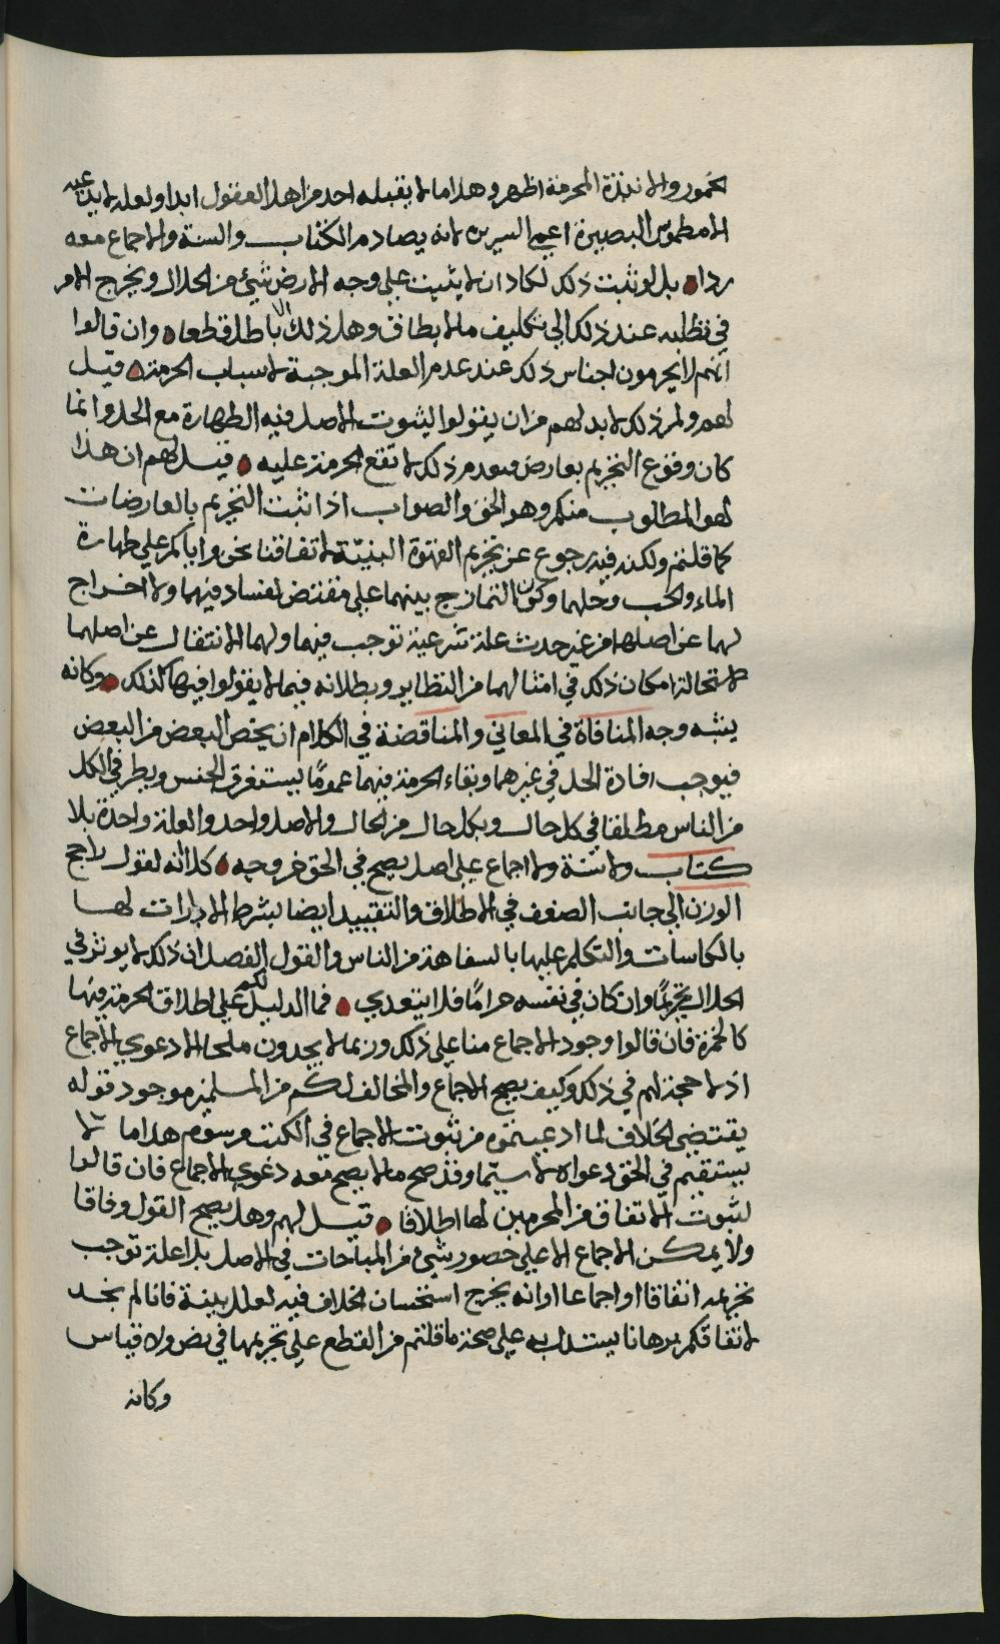 كخمور والانبذة المحرمة اظهر وهذا ما لا يقبله احد من اهل العقول ابدا ولعله لا يدعيه
الا مطموس البصيرة اعمى السريرة لانه يصادم الكتاب والسنة والاجماع معه
ردا بل لو ثبت ذلك لكاد ان لا يثبت على وجه الارض شيئ من الحلال ويخرج الامر
في تطلبه عند ذلك الى تكليف ما لا يطاق وهل ذلك الا باطل قطعا وان قالوا
انهم لا يحرمون اجناس ذلك عند عدم العلة الموجبة لاسباب الحرمة قيل
لهم ولم ذلك لا بد لهم من ان يقولوا لثبوت الاصل فيه الطهارة مع الحل وانما
كان وقوع التحريم بعارض وبعدم ذلك لا تقع الحرمة عليه قيل لهم ان هذا
لهو المطلوب منكم وهو الحق والصواب اذا ثبت التحريم بالعارضات
كما قلتم ولكن فيه رجوع عن تحريم القهوة البنيّة لاتفاقنا نحن واياكم على طهارة
الماء والحب وحلهما وكون التمازج بينهما على مقتض لفساد فيهما ولا اخراج
لهما عن اصلهما من غير حدث علة شرعية توجب فيهما ولهما الانتقال عن اصلهما
لاستحالة امكان ذلك في امثالهما من النظاير وبطلانه فيما لا يقولوا فيها كذلك وكانه
ينبه وجه المنافاة في المعاني والمناقضة في الكلام ان يخص البعض من البعض
فيوجب افادة الحل في غيرهما وبقاء الحرمة فيهما عمومًا يستغرق الجنس ويطرق الكل
من الناس مطلقا في كل حال وبكل حال من الحال والاصل واحد والعلة واحدة بلا
كتاب ولا سنة ولا اجماع على اصل يصح في الحق خروجه كلا انه لقول راجح
الوزن الى جانب الضعف في الاطلاق والتقييد ايضا بشرط الادارات لها
بالكاسات والتكلم عليها بالسفاهة من الناس والقول الفصل ان ذلك لا يوثر في
الحلال تحريمًا وان كان في نفسه حرامًا فلا يتعدي فما الدليل لكم على اطلاق الحرمة فيها
كالخمرة فان قالوا وجود الاجماع منا على ذلك وربما لا يجدون ملجا الا دعوى الاجماع
اذ لا حجة لهم في ذلك وكيف يصح الاجماع والمخالف لكم من المسلمين موجود قوله
يقتضي الخلاف لما ادعيتموه من ثبوت الاجماع في الكتب مرسوم هذا ما لا
يستقيم في الحق دعواه لا سيّما وقد صح ما لا يصح معه دعوى الاجماع فان قالوا
لثبوت الاتفاق من المحرمين لها اطلاقا قيل لهم وهل يصح القول وفاقا
ولا يمكن الاجماع الا على حصور شيئ من المباحات في الاصل بلا علة توجب
تحريمه اتفاقا او اجماعا او انه يخرج استحسان الخلاف فيه لعلل بينة فانا لم نجد
لاتفاقكم برهانا يستدل به على صحة ما قلتم من القطع على تحريمها في نص ولا قياس
وكانه